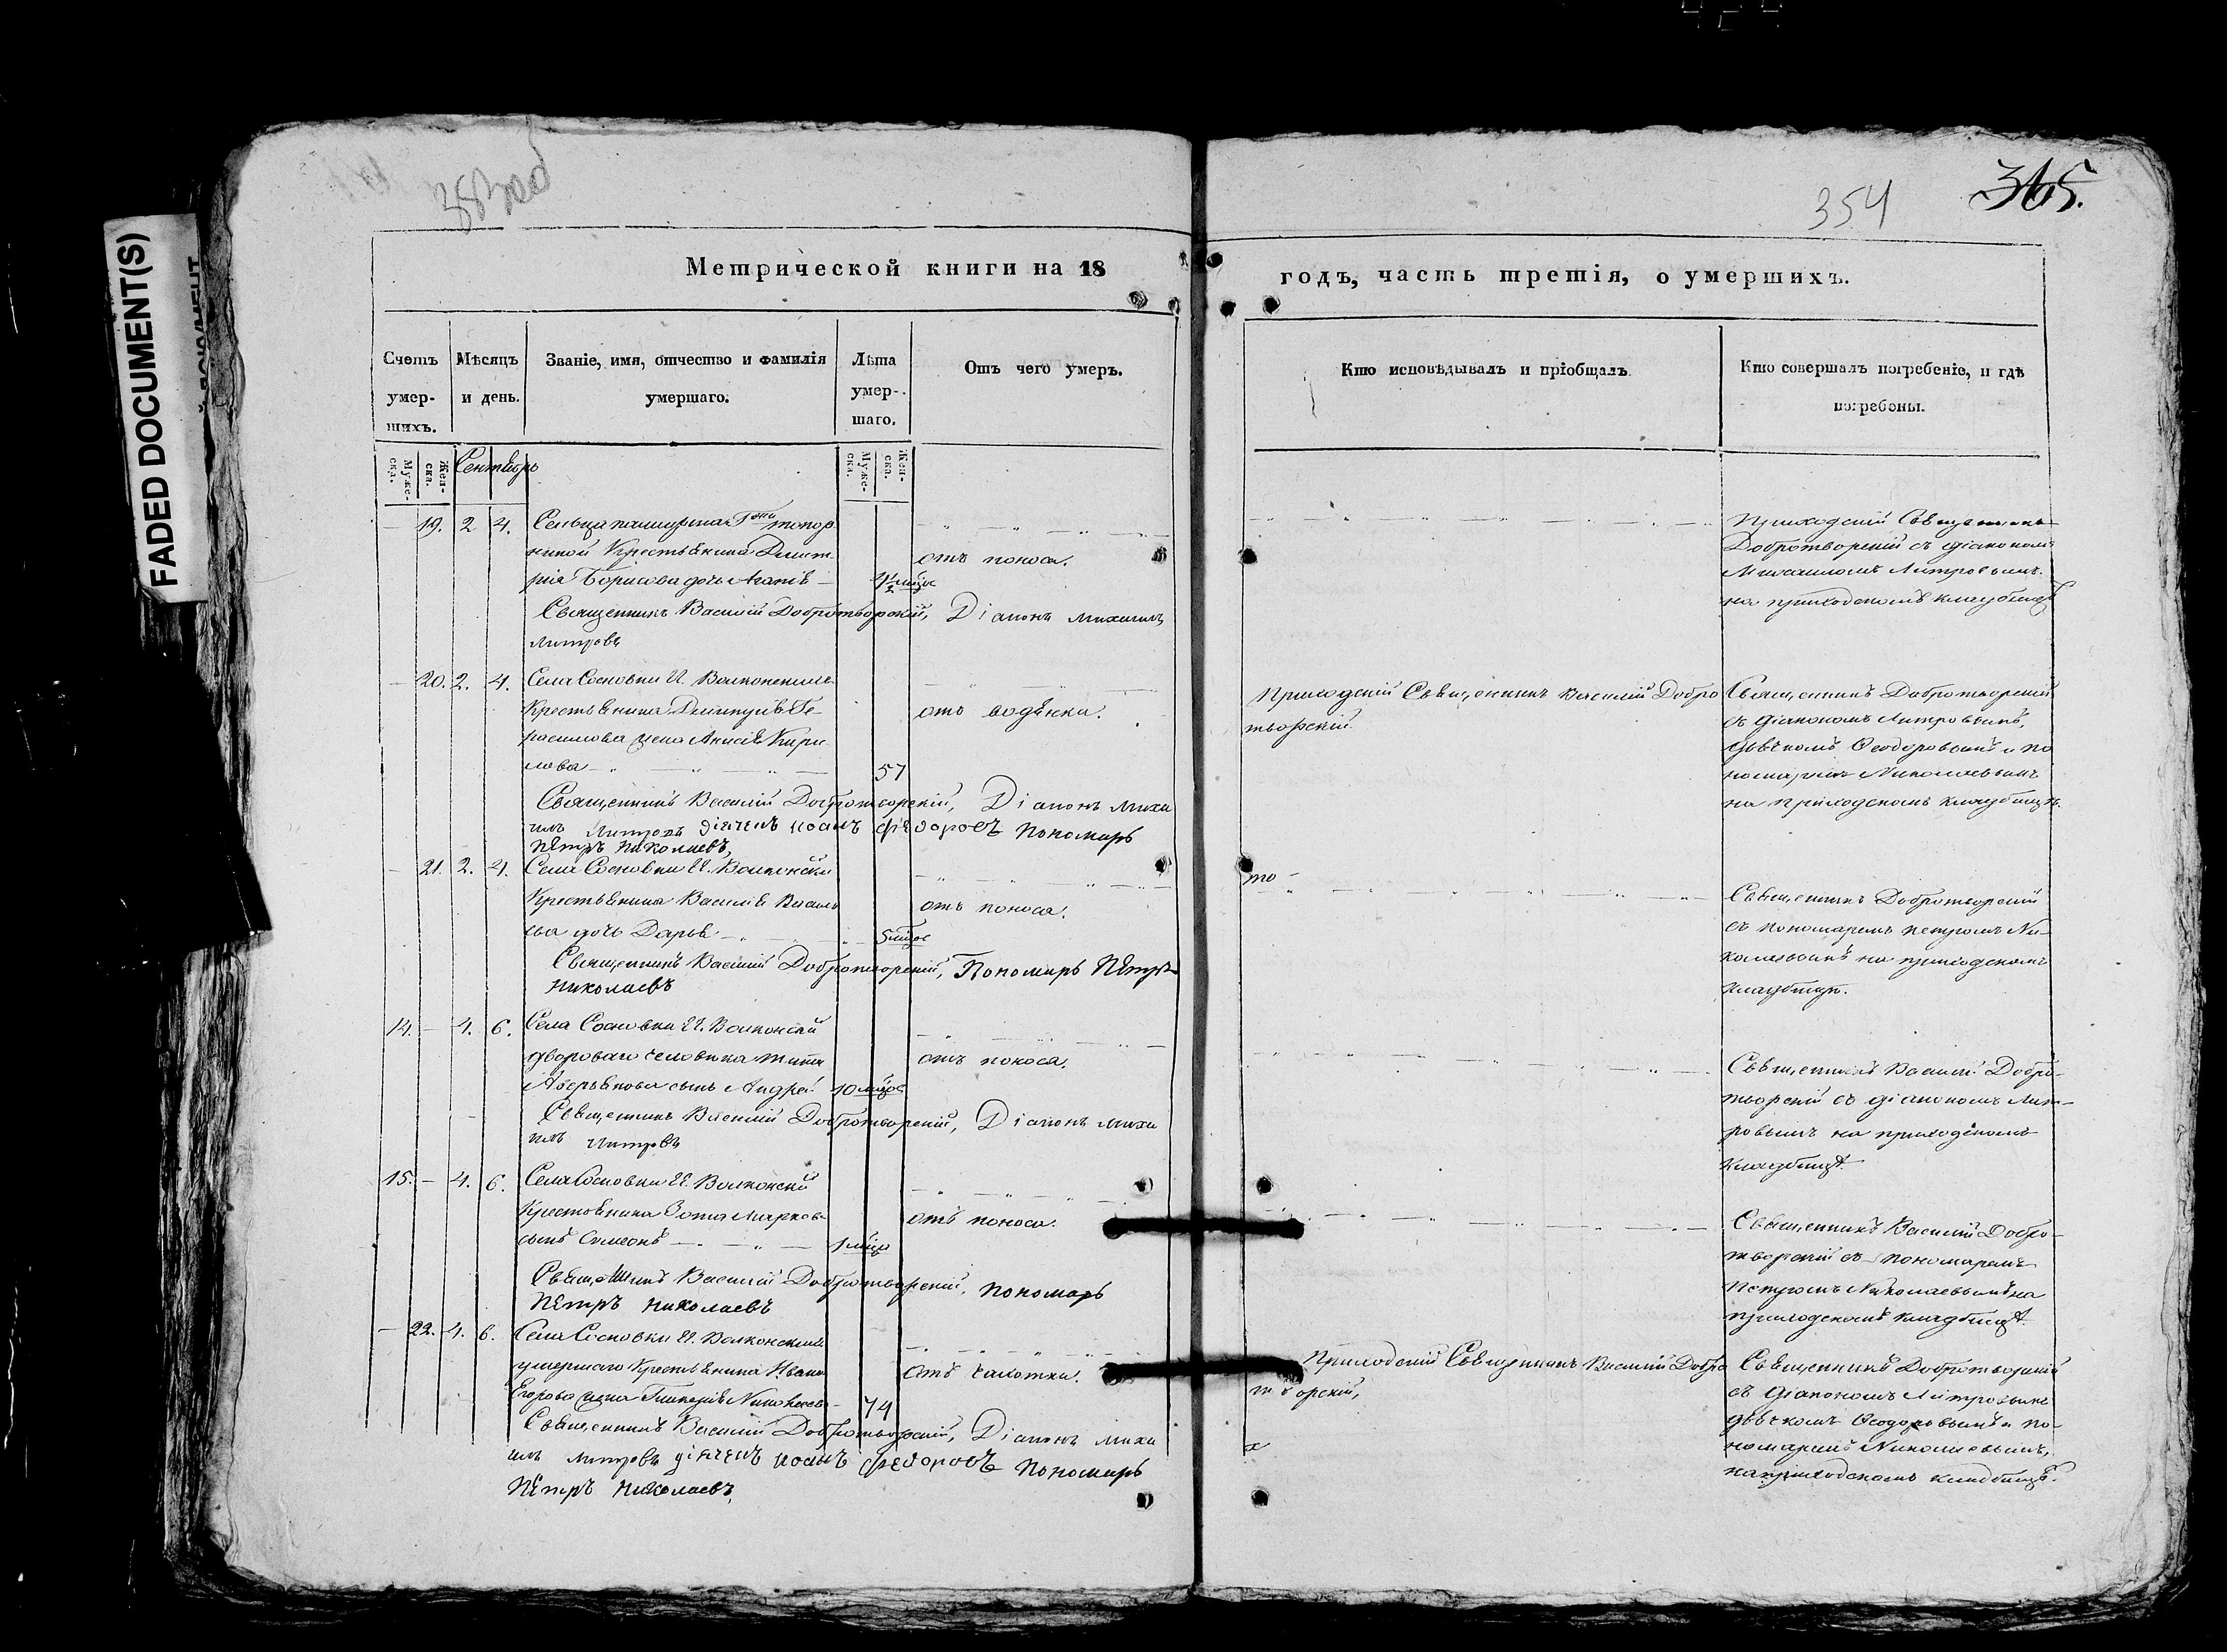 FADED DOCUMENT(S)
354
365.
Метрической книги на 18
годъ, часть третія, о умершихъ.
Счетъ умер- шихъ.
Мѣсяцъ и день.
Званіе, имя, отчество и фамилія умершаго.
Лѣта умер- шаго.
Отъ чего умеръ.
Кто исповѣдывалъ и пріобщалъ
Кто совершалъ погребеніе, и гдѣ погребены.
Муже- ска.
Жен- ска.
Сентябрь
Муже- ска.
Жен- ска.
19. 2 4. Сельца
киной Крестьянина Дмит
рія Борисова дочь Агапія
отъ поноса.
Священникъ Василій Добротворскій, Діаконъ Михаилъ
Митровъ
Приходскій Священникъ
Добротворскій съ діакономъ
Михаиломъ Митровымъ
на приходскомъ кладбищѣ
20. 2. 4. Села Сосновки И. Волконскихъ
Крестьянина Димитрія Ге-
расимова жена Анисія Кири
лова 57
отъ водянки.
Священникъ Василій Добротворскій, Діаконъ Миха
илъ Митровъ діячекъ Иоанъ Федоровъ Пономарь
Пётръ Николаевъ,
Приходскій Священникъ Василій Добро
творскій
Священникъ Добротворскій
съ діакономъ Митровымъ,
дьячкомъ Феодоровымъ и по
номаремъ Николаевымъ
на приходскомъ кладбищѣ.
21. 2. 4. Села Сосновки И. Волконской
Крестьянина Василія Василь
ева дочь Дарья 5 мѣцов
отъ поноса.
Священникъ Василій Добротворскій, Пономарь Пётръ
Николаевъ
то
Священникъ Добротворскій
съ пономаремъ Петромъ Ни-
колаевымъ на приходскомъ
кладбищѣ.
14. 4. 6. Села Сосновки И. Волконской
двороваго человѣка Тита
Аверьянова сынъ Андрей 10 мѣцов
отъ поноса.
Священникъ Василій Добротворскій, Діаконъ Миха
илъ Митровъ
Священникъ Василій Добро-
творскій съ діакономъ Мит-
ровымъ на приходскомъ
кладбищѣ.
15. 4. 6. Села Сосновки И. Волконской
Крестьянина Зота Марков
сынъ Симеонъ 1 мѣць
отъ поноса.
Священникъ Василій Добротворскій, Пономарь
Пётръ Николаевъ
Священникъ Василій Добро-
творскій съ пономаремъ
Петромъ Николаевымъ на
приходскомъ кладбищѣ.
22. 4. 6. Села Сосновки И. Волконскихъ
умершаго Крестьянина Ивана
Егорова жена Николаева 74
отъ чахотки.
Священникъ Василій Добротворскій, Діаконъ Миха
илъ Митровъ діячекъ Иоанъ Федоровъ Пономарь
Пётръ Николаевъ,
Приходскій Священникъ Василій Добро
творскій,
Священникъ Добротворскій
съ діакономъ Митровымъ
дьячкомъ Феодоровымъ и по-
номаремъ Николаевымъ,
на приходскомъ кладбищѣ.